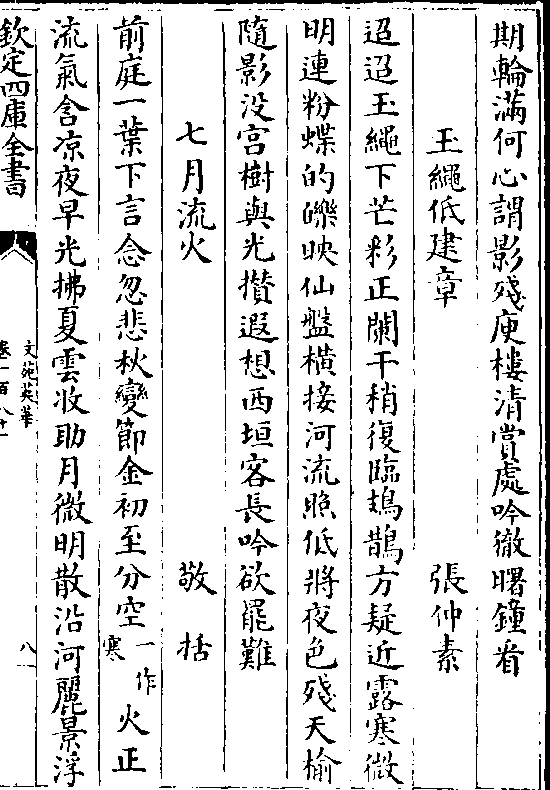 期輪滿何心謂影殘庾樓清賞處吟徹曙鐘看
玉繩低建章 張仲素
迢迢玉繩下芒彩正闌干稍復臨鳷鵲方疑近露寒微
明連粉蝶的皪映仙盤橫接河流照低將夜色殘天榆
隨影沒宫樹與光攅遐想西垣客長吟欲罷難
七月流火 敬括
前庭一葉下言念忽悲秋變節金初至分空一作寒火正
流氣含凉夜早光拂夏雲收助月微明散沿河麗景浮
欽定四庫全書
文苑英華
卷一百八十一
八